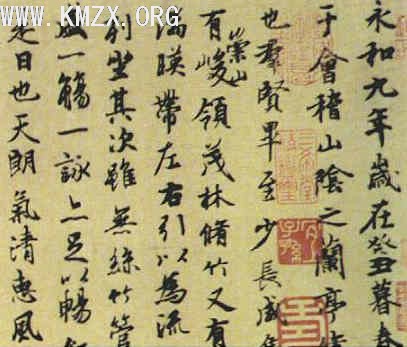 WWW.KMZX.ORG
永和九年歲在癸丑暮春
于會稽山陰之蘭亭
也羣賢畢至少長咸
有崇山峻領茂林脩竹又有
湍暎帶左右引以為流
列坐其次雖無絲竹管
盛一觴一詠亦足以暢
是日也天朗氣清惠風